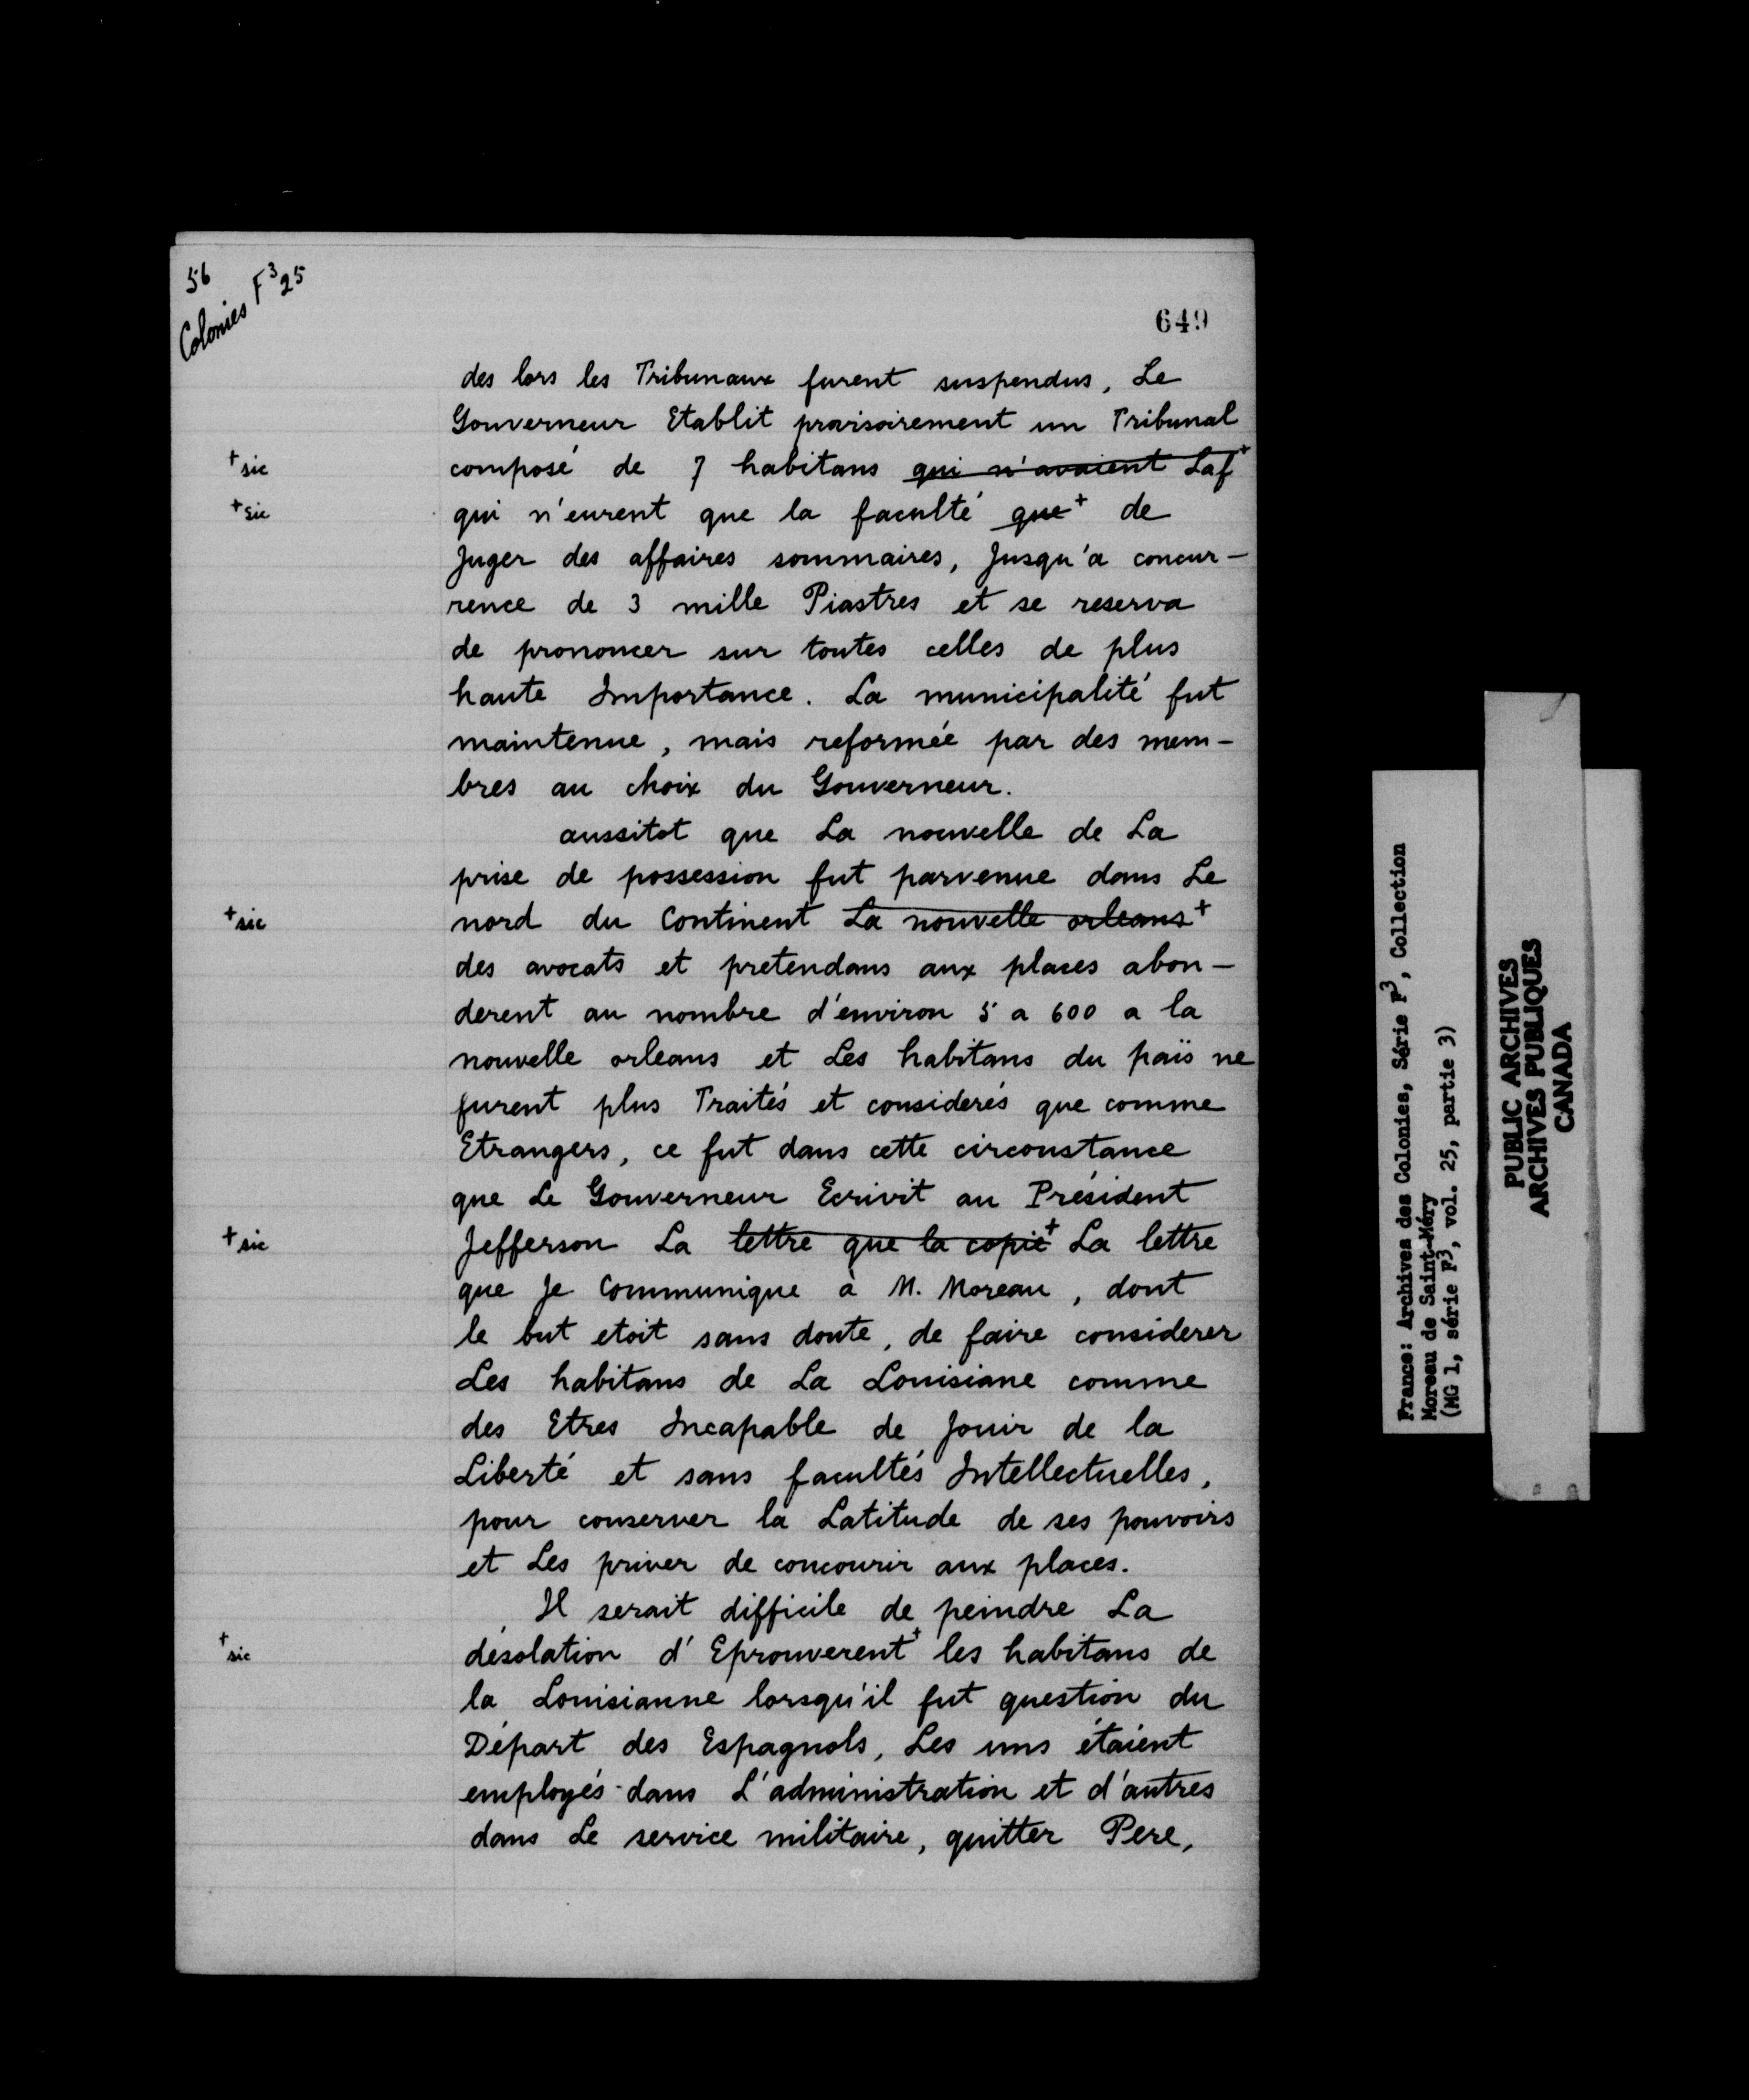 56
Colonies F³ 25
649
des lors les Tribunaux furent suspendus, Le
Gouverneur Etablit provisoirement un Tribunal
+sic
composé de 7 habitans qui n'avaient Laf+
+sic
qui n'eurent que la faculté que+ de
Juger des affaires sommaires, Jusqu'a concur-
rence de 3 mille Piastres et se reserva
de prononcer sur toutes celles de plus
haute Importance. La municipalité fut
maintenue, mais reformée par des mem-
bres au choix du Gouverneur.
aussitot que La nouvelle de La
prise de possession fut parvenue dans Le
+sic
nord du Continent La nouvelle orleans+
des avocats et pretendans aux places abon-
derent au nombre d'environ 5 a 600 a la
nouvelle orleans et Les habitans du païs ne
furent plus Traités et considerés que comme
Etrangers, ce fut dans cette circonstance
que Le Gouverneur Ecrivit au Président
+sic
Jefferson La lettre que la copie+ La lettre
que Je Communique à M. Moreau, dont
le but etoit sans doute, de faire considerer
Les habitans de La Louisiane comme
des Etres Incapable de Jouir de la
Liberté et sans facultés Intellectuelles,
pour conserver la Latitude de ses pouvoirs
et Les priver de concourir aux places.
Il serait difficile de peindre La
+sic
désolation d'Eprouverent+ les habitans de
la Louisianne lorsqu'il fut question du
Départ des Espagnols, Les uns étaient
employés dans L'administration et d'autres
dans Le service militaire, quitter Pere,
France: Archives des Colonies, Série F³, Collection
Moreau de Saint-Méry
(MG 1, série F³, vol. 25, partie 3)
PUBLIC ARCHIVES
ARCHIVES PUBLIQUES
CANADA